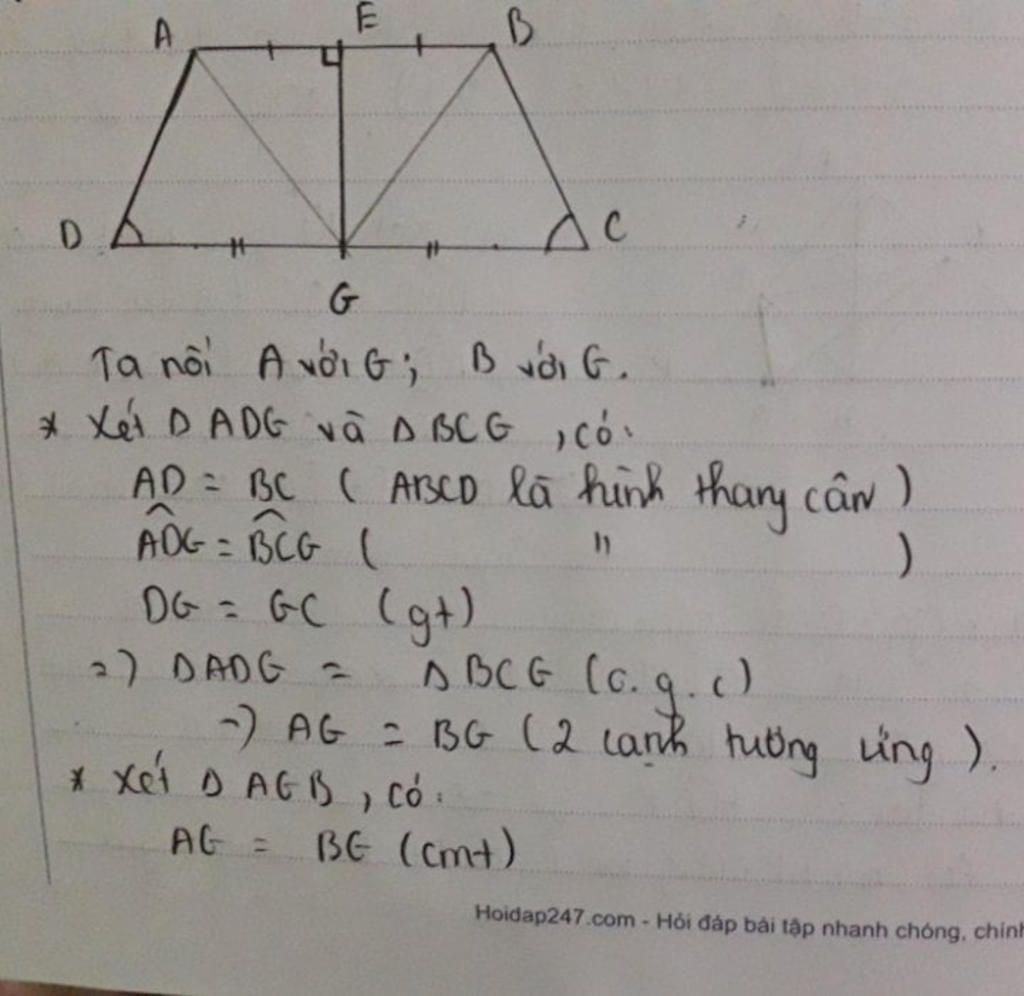 A E B
D G C
Ta nối A với G; B với G.
* Xét Δ ADG và Δ BCG , có:
AD = BC ( ABCD là hình thang cân )
\widehat{ADG} = \widehat{BCG} ( " )
DG = GC (gt)
=> Δ ADG = Δ BCG (c.g.c)
=> AG = BG ( 2 cạnh tương ứng ).
* Xét Δ AGB , có:
AG = BG (cmt)
Hoidap247.com - Hỏi đáp bài tập nhanh chóng, chính